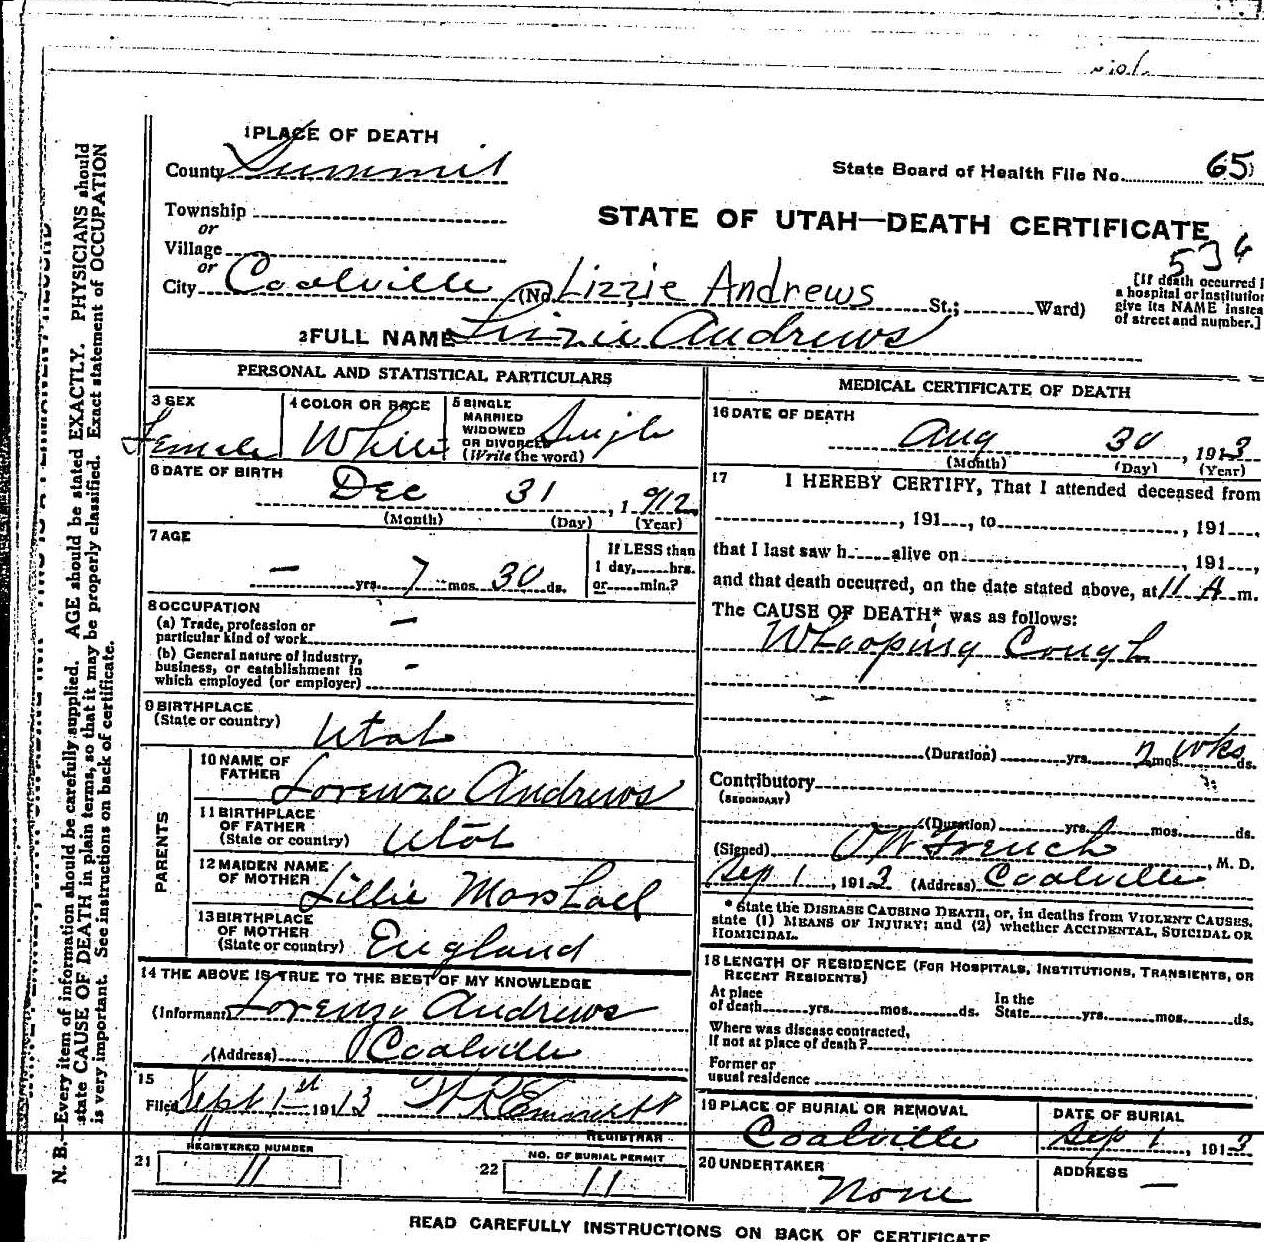 1 PLACE OF DEATH
County Summit
State Board of Health File No. 65
Township
or
STATE OF UTAH—DEATH CERTIFICATE
536
Village
or
City Coalville (No. Lizzie Andrews St.; Ward)
[If death occurred i
a hospital or institution
give its NAME instea
of street and number.]
2 FULL NAME Lizzie Andrews
PERSONAL AND STATISTICAL PARTICULARS
3 SEX
Female
4 COLOR OR RACE
White
5 SINGLE
MARRIED
WIDOWED
OR DIVORCED
(Write the word)
Single
6 DATE OF BIRTH
Dec 31, 1912
(Month) (Day) (Year)
7 AGE
- yrs. 7 mos. 30 ds.
If LESS than
1 day, hrs.
or min.?
8 OCCUPATION
(a) Trade, profession or
particular kind of work -
(b) General nature of industry,
business, or establishment in
which employed (or employer) -
9 BIRTHPLACE
(State or country) Utah
PARENTS
10 NAME OF
FATHER Lorenzo Andrews
11 BIRTHPLACE
OF FATHER
(State or country) Utah
12 MAIDEN NAME
OF MOTHER Lillie Marshall
13 BIRTHPLACE
OF MOTHER
(State or country) England
14 THE ABOVE IS TRUE TO THE BEST OF MY KNOWLEDGE
(Informant) Lorenzo Andrews
(Address) Coalville
15
Filed Sept 1st 1913
REGISTRAR
21 REGISTERED NUMBER
11
22 NO. OF BURIAL PERMIT
11
MEDICAL CERTIFICATE OF DEATH
16 DATE OF DEATH
Aug 30, 1913
(Month) (Day) (Year)
17 I HEREBY CERTIFY, That I attended deceased from
, 191 , to , 191 ,
that I last saw h alive on , 191 ,
and that death occurred, on the date stated above, at 11 A m.
The CAUSE OF DEATH* was as follows:
Whooping Cough
(Duration) yrs. 2 mos. wks ds.
Contributory
(SECONDARY)
(Duration) yrs. mos. ds.
(Signed) O W French, M. D.
Sep 1, 1913 (Address) Coalville
* State the DISEASE CAUSING DEATH, or, in deaths from VIOLENT CAUSES,
state (1) MEANS OF INJURY; and (2) whether ACCIDENTAL, SUICIDAL OR
HOMICIDAL.
18 LENGTH OF RESIDENCE (FOR HOSPITALS, INSTITUTIONS, TRANSIENTS, OR
RECENT RESIDENTS)
At place
of death yrs. mos. ds.
In the
State yrs. mos. ds.
Where was disease contracted,
if not at place of death?
Former or
usual residence
19 PLACE OF BURIAL OR REMOVAL
Coalville
DATE OF BURIAL
Sep 1, 1913
20 UNDERTAKER
None
ADDRESS
—
READ CAREFULLY INSTRUCTIONS ON BACK OF CERTIFICATE
N. B.—Every item of information should be carefully supplied. AGE should be stated EXACTLY. PHYSICIANS should
state CAUSE OF DEATH in plain terms, so that it may be properly classified. Exact statement of OCCUPATION
is very important. See instructions on back of certificate.